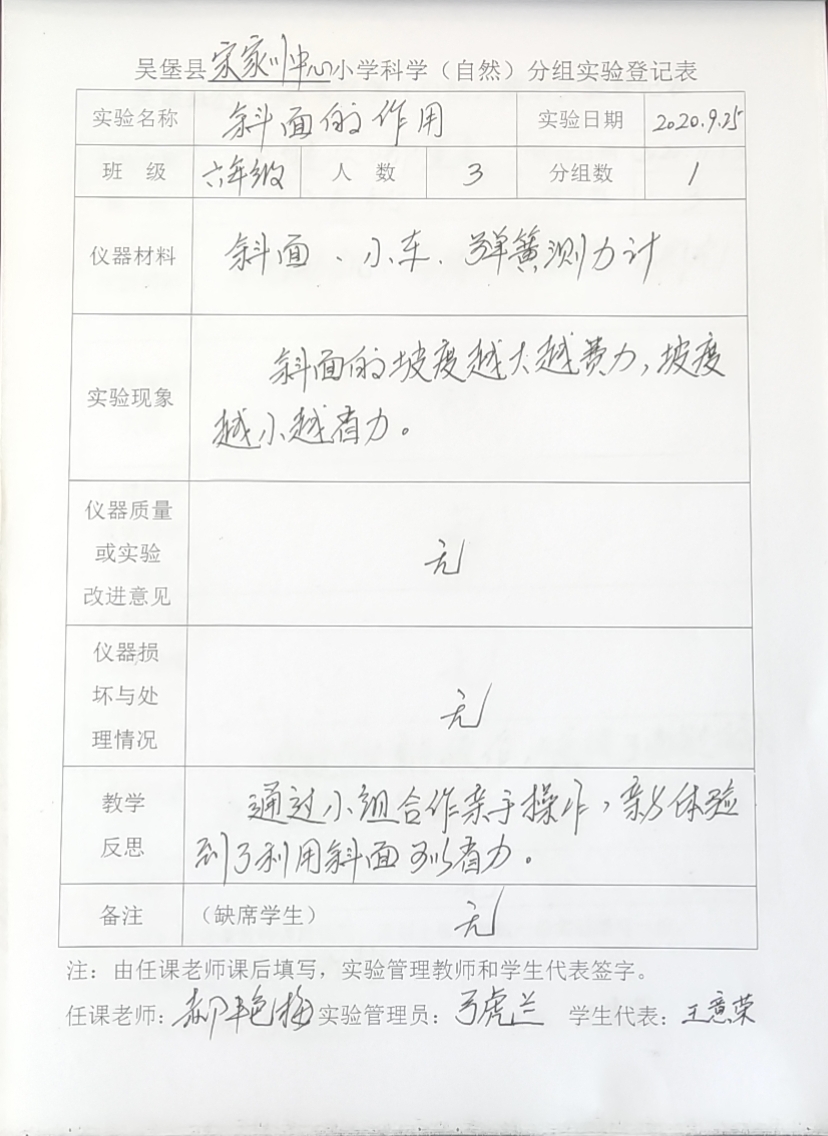 吴堡县宋家川中心小学科学（自然）分组实验登记表
实验名称 斜面的作用 实验日期 2020.9.25
班 级 六年级 人 数 3 分组数 1
仪器材料 斜面、小车、弹簧测力计
实验现象 斜面的坡度越大越费力，坡度
越小越省力。
仪器质量
或实验
改进意见
无
仪器损
坏与处
理情况
无
教学
反思
通过小组合作亲手操作，亲身体验
到了利用斜面可以省力。
备注 （缺席学生） 无
注：由任课老师课后填写，实验管理教师和学生代表签字。
任课老师：郝艳梅 实验管理员：弓虎兰 学生代表：王意荣